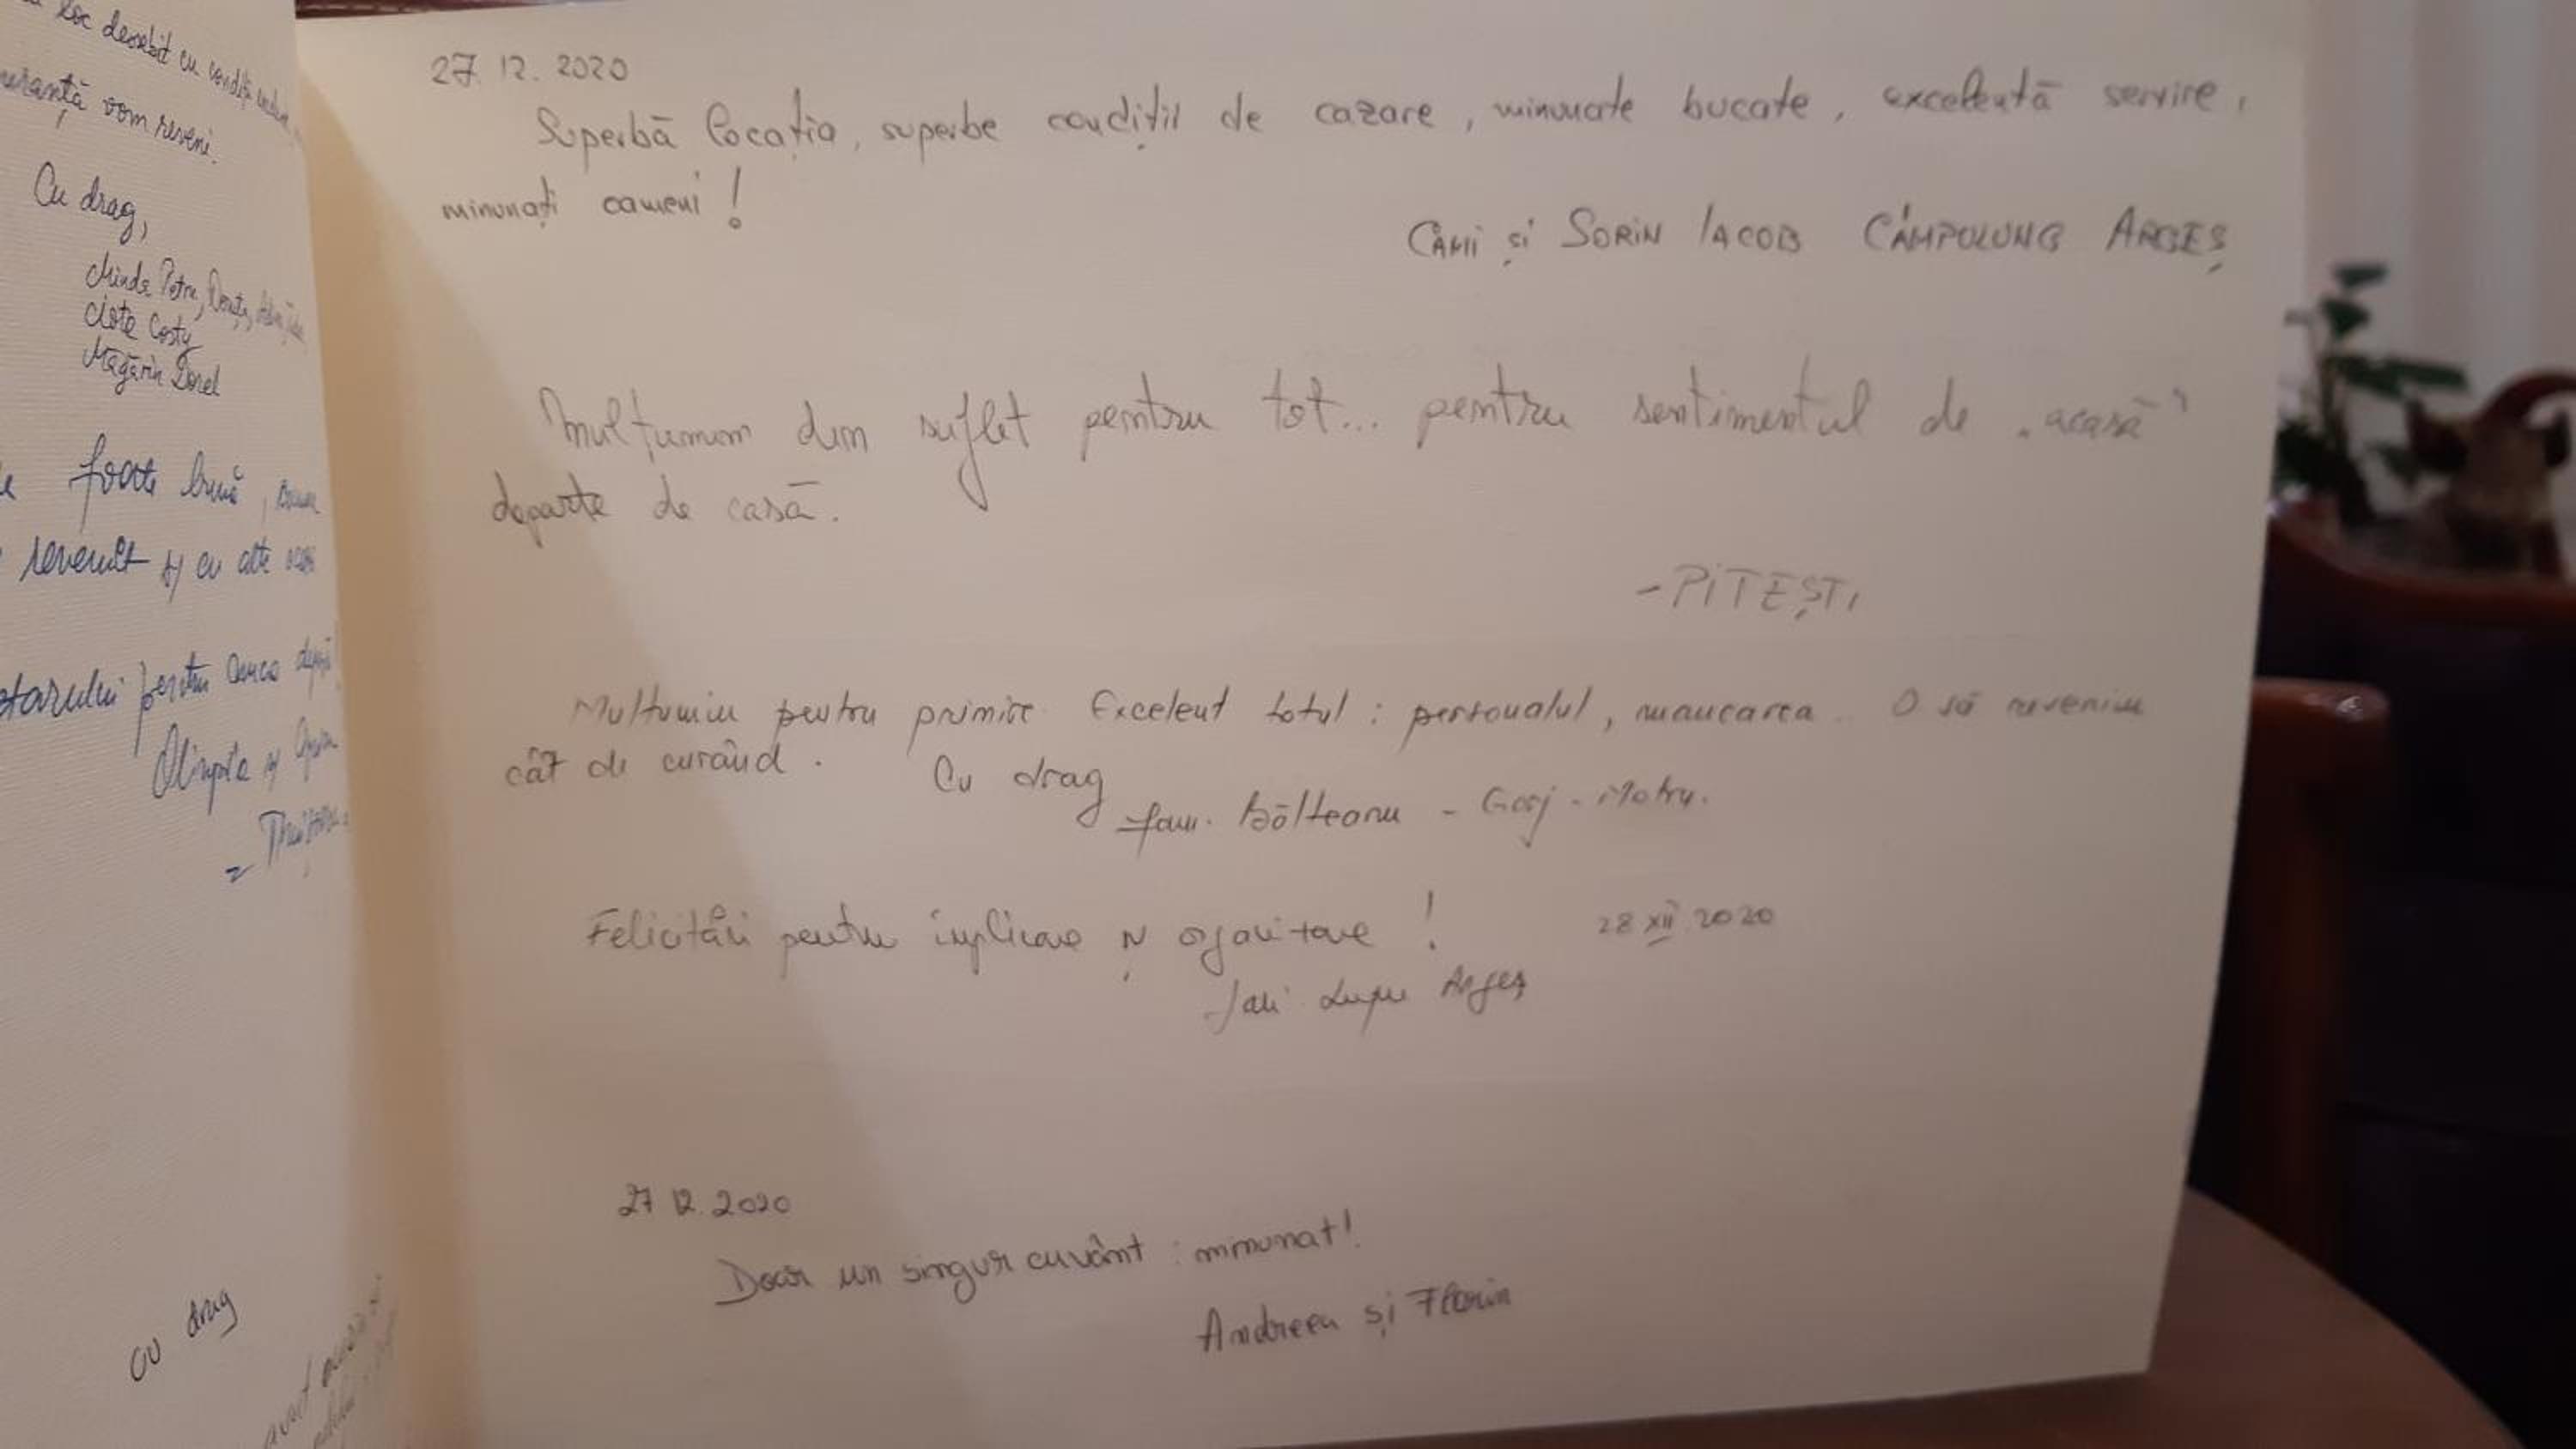 loc deosebit cu condiții
vom reveni.
Cu drag,
Petre,
Costy
Dorel
foarte bună,
revenit și cu alte
pentru
Olimpia și
cu drag
27.12.2020
Superbă locația, superbe condiții de cazare, minunate bucate, excelentă servire,
minunați oameni!
CAMI și SORIN IACOB CÂMPULUNG ARGEȘ
Mulțumim din suflet pentru tot... pentru sentimentul de „acasă”
departe de casă.
- PITEȘTI
Multumim pentru primire. Excelent totul: personalul, mancarea.. O să revenim
cât de curând. Cu drag
fam. Bălteanu - Gorj - Motru.
Felicitări pentru implicare și organizare! 28 XII 2020
fam. Lupu Argeș
27.12.2020
Doar un singur cuvânt: minunat!
Andreea și Florin